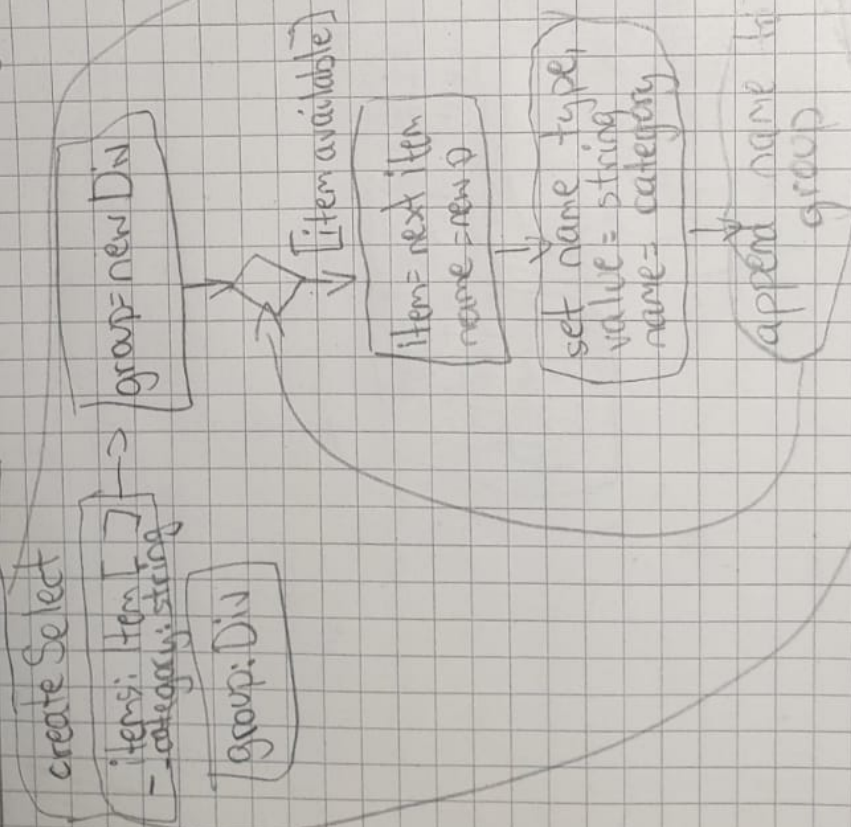 createSelect
items: Item[]
_category: string
group: Div
group = new Div
[item available]
item = next item
name = new
set name type,
value = string
name = category
append name
group